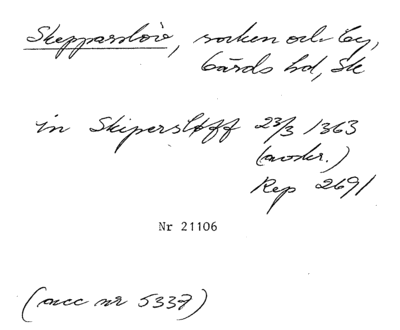 Skepparslöv, socken och by,
Gärds hd, Sk
in Skipersløff 23/3 1363
(avskr.)
Rep 2691
Nr 21106
(acc nr 5337)